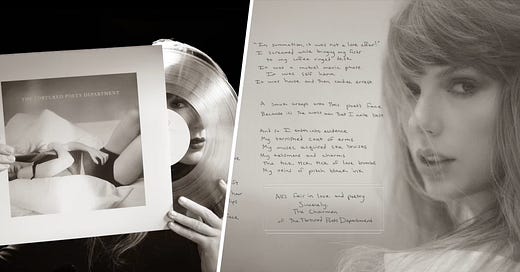 THE TORTURED POETS DEPARTMENT
"In summation, it was not a love affair!"
I screamed while bringing my fists
to my coffee ringed desk
It was a mutual manic phase
It was self harm
It was house and then cardiac arrest
A smirk creeps onto this poet's face
Because it's the worst men that I write best
And so I enter into evidence
My tarnished coat of arms
My muses, acquired like bruises
My talismans and charms
The tick, tick, tick of love bombs
My veins of pitch black ink
All's fair in love and poetry
Sincerely,
The Chairman
of The Tortured Poets Department